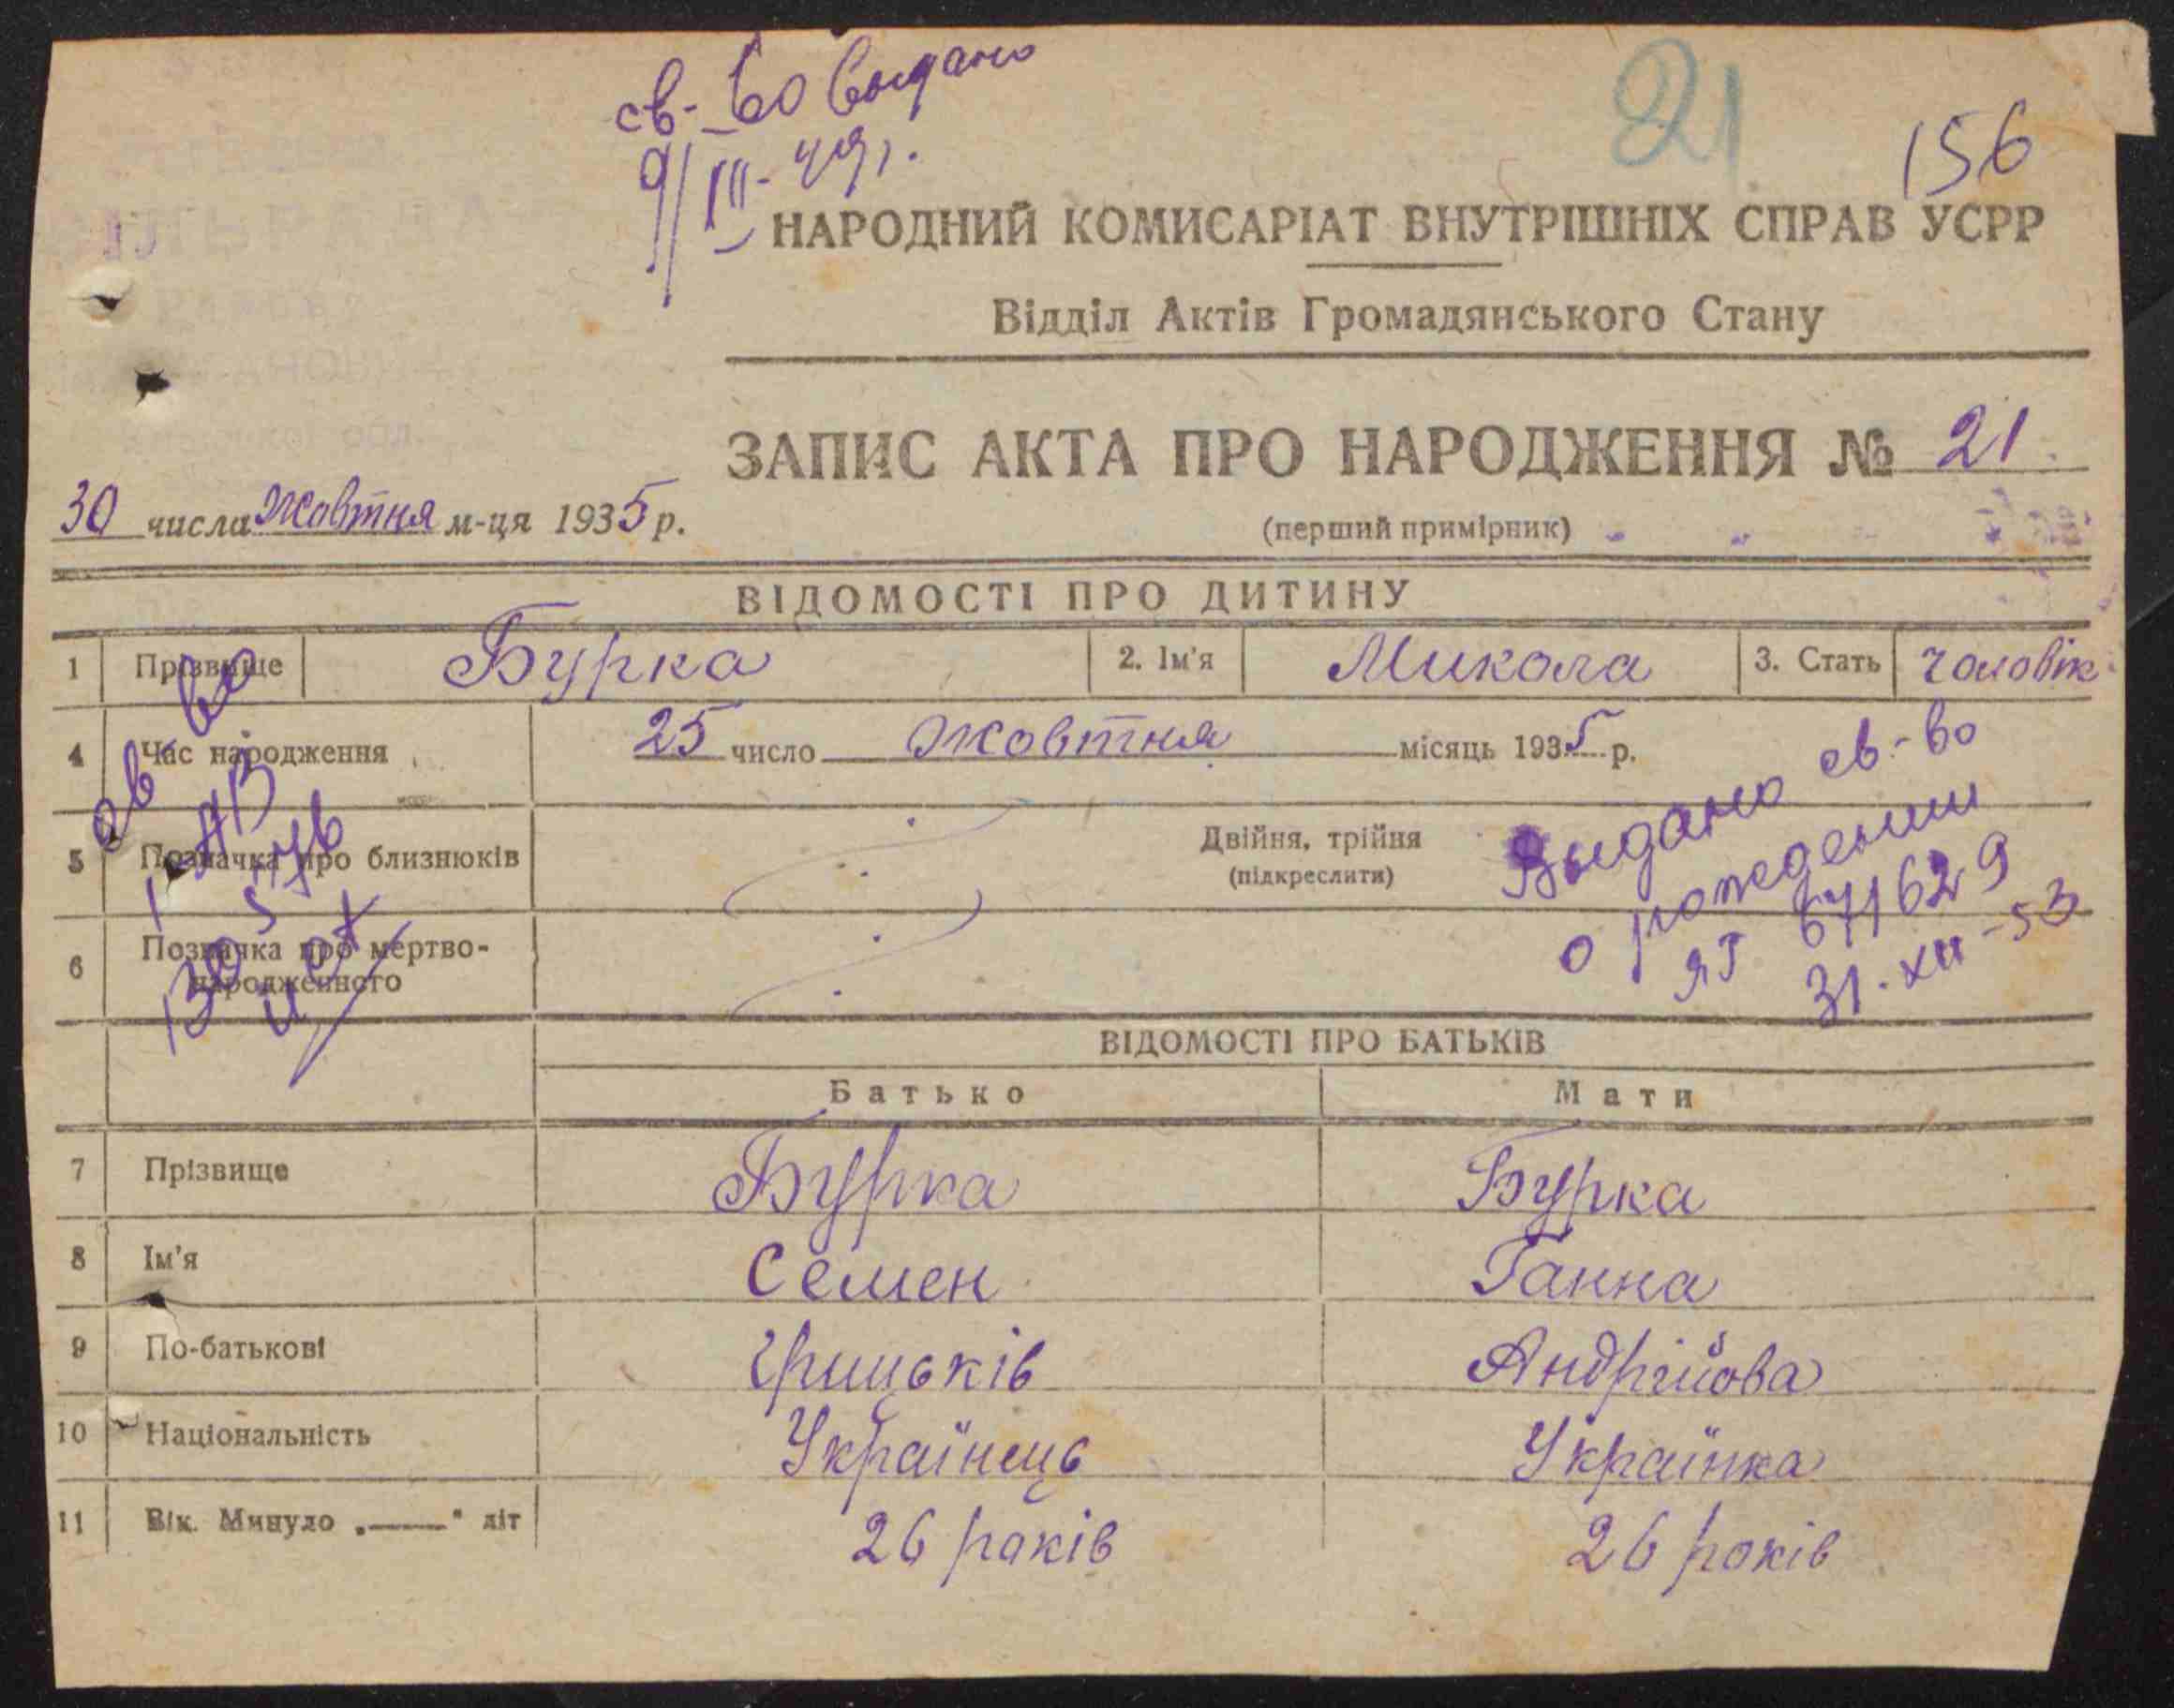 св-во выдано
9/III-49г.
21
156
НАРОДНИЙ КОМИСАРІАТ ВНУТРІШНІХ СПРАВ УСРР
Відділ Актів Громадянського Стану
ЗАПИС АКТА ПРО НАРОДЖЕННЯ № 21
30 числа Жовтня м-ця 1935 р.
(перший примірник)
ВІДОМОСТІ ПРО ДИТИНУ
1 Прізвище Бурка 2. Ім'я Микола 3. Стать чоловік
4 Час народження 25 число Жовтня місяць 1935 р.
св-во
5 Позначка про близнюків Двійня, трійня
(підкреслити)
Выдано св-во
о рождении
ЯТ 671629
31.XII-53
6 Позначка про мертво-
народженного
ВІДОМОСТІ ПРО БАТЬКІВ
Батько Мати
7 Прізвище Бурка Бурка
8 Ім'я Семен Ганна
9 По-батькові Грицьків Андрійова
10 Національність Українець Українка
11 Вік. Минуло „——" літ 26 років 26 років